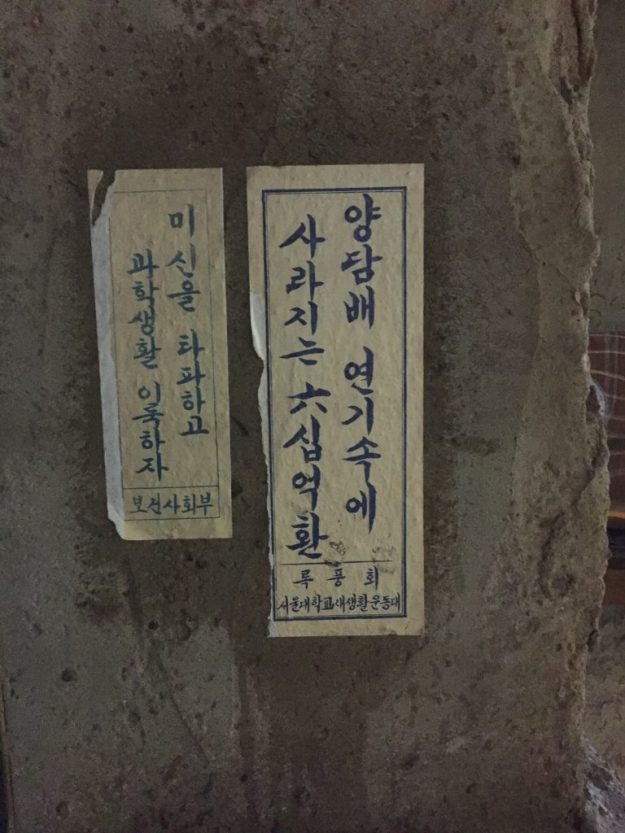 양담배 연기속에
사라지는 六십억환
록 풍 회
서울대학교새생활운동대
미신을 타파하고
과학생활 이룩하자
보건사회부